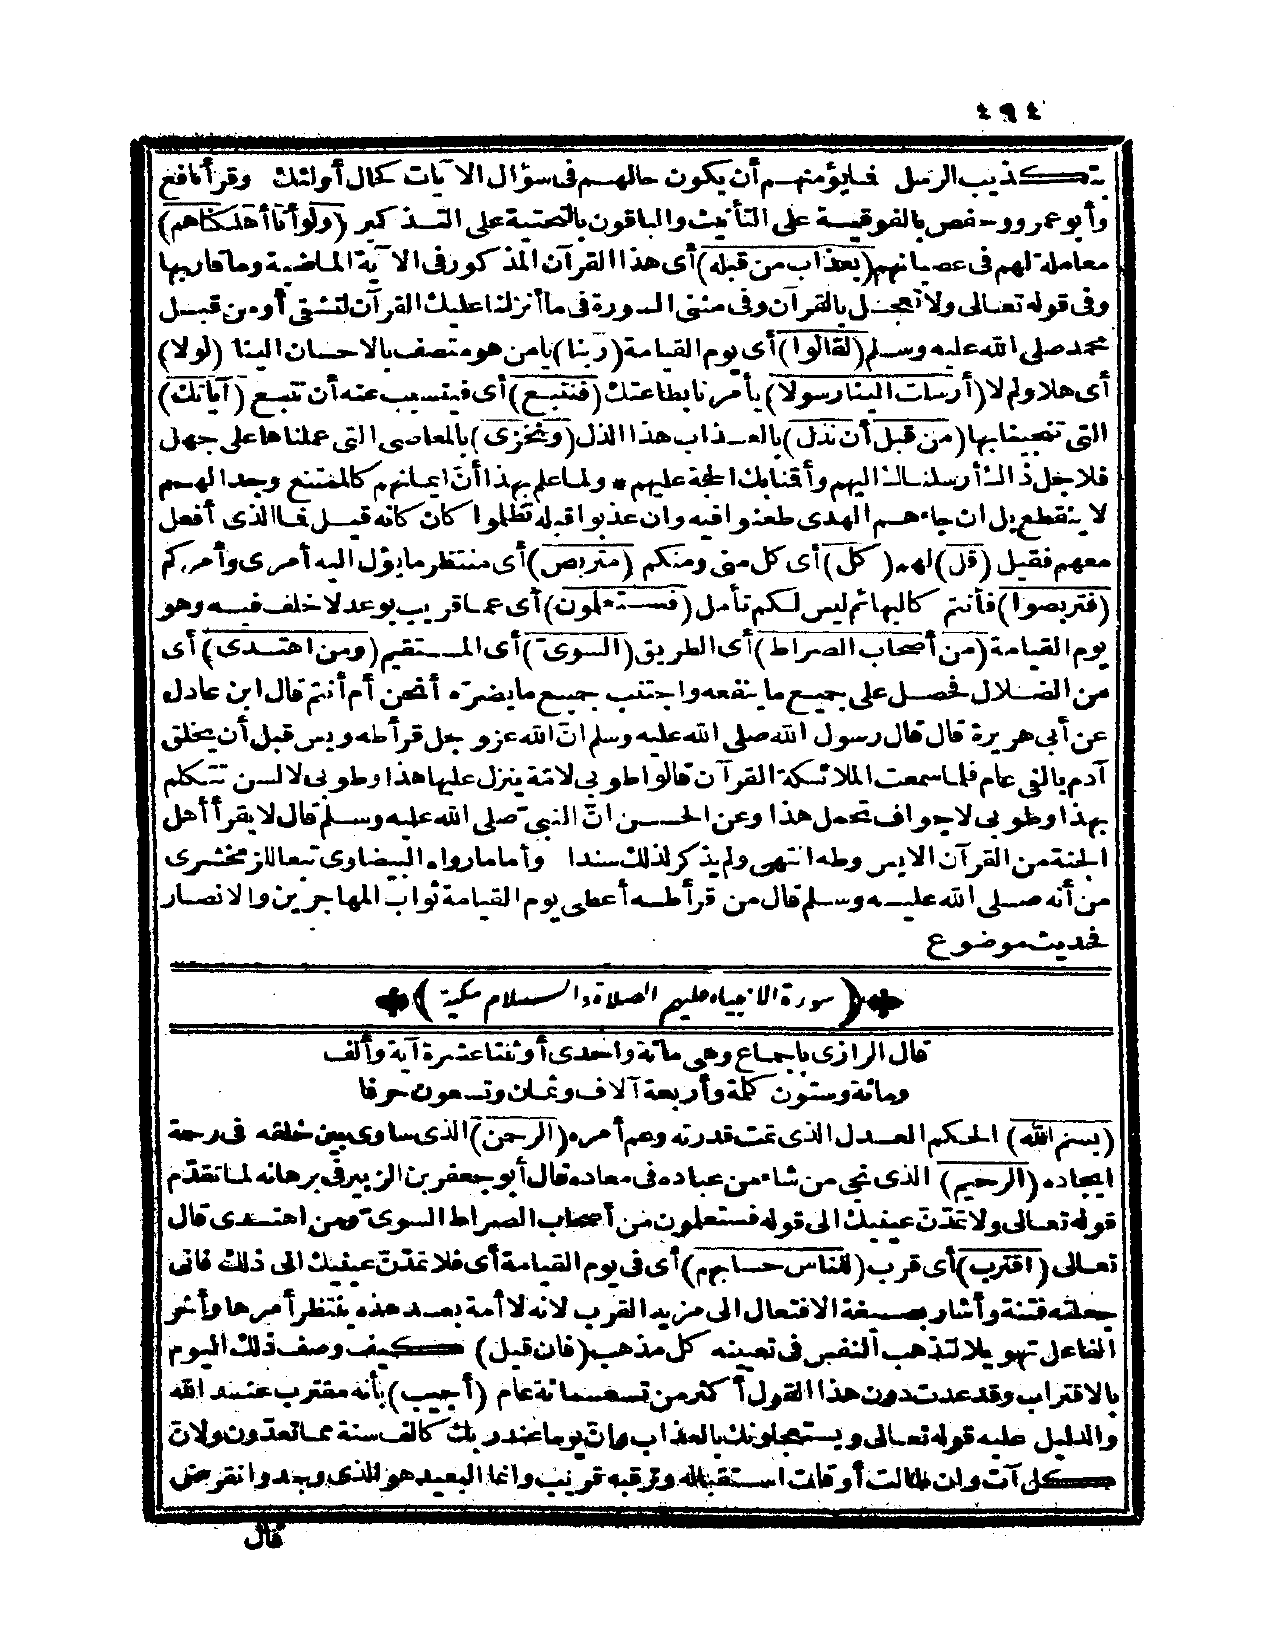 ٤٩٤
بتكذيب الرسل فما يؤمنهم أن يكون حالهم فى سؤال الآيات كحال أولئك وقرأ نافع
وأبو عمرو وحفص بالفوقية على التأنيث والباقون بالتحتية على التذكير (ولو أنا أهلكناهم)
معاملة لهم فى عصيانهم (بعذاب من قبله) أى هذا القرآن المذكور فى الآية الماضية وما قاربها
وفى قوله تعالى ولا تعجل بالقرآن وفى مثنى السورة فى ما أنزلنا عليك القرآن لتشقى أو من قبل
محمد صلى الله عليه وسلم (لقالوا) أى يوم القيامة (ربنا) يا من هو متصف بالاحسان الينا (لولا)
أى هلا ولم لا (أرسلت الينا رسولا) يأمرنا بطاعتك (فنتبع) أى فيتسبب عنه أن نتبع (آياتك)
التى تجيئنا بها (من قبل أن نذل) بالعذاب هذا الذل (ونخزى) بالمعاصى التى عملناها على جهل
فلاجل ذلك أرسلناك اليهم وأقنا بك الحجة عليهم * ولما علم بهذا أن ايمانهم كالممتنع وجدالهم
لا ينقطع بل ان جاءهم الهدى طعنوا فيه وان عذبوا قبله تظلموا كان كانه قيل فما الذى أفعل
معهم فقيل (قل) لهم (كل) أى كل منى ومنكم (متربص) أى منتظر ما يؤل اليه أمرى وأمركم
(فتربصوا) فأنتم كالبهائم ليس لكم تأمل (فستعلمون) أى عما قريب بوعد لا خلف فيه وهو
يوم القيامة (من أصحاب الصراط) أى الطريق (السوى) أى المستقيم (ومن اهتدى) أى
من الضلال فحصل على جميع ما ينفعه واجتنب جميع ما يضره أنحن أم أنتم قال ابن عادل
عن أبى هريرة قال قال رسول الله صلى الله عليه وسلم ان الله عز وجل قرأ طه ويس قبل أن يخلق
آدم بالفى عام فلما سمعت الملائكة القرآن قالوا طوبى لامة ينزل عليها هذا وطوبى لالسن تتكلم
بهذا وطوبى لاجواف تحمل هذا وعن الحسن ان النبى صلى الله عليه وسلم قال لا يقرأ أهل
الجنة من القرآن الا يس وطه انتهى ولم يذكر لذلك سندا وأما ما رواه البيضاوى تبعا للزمخشرى
من أنه صلى الله عليه وسلم قال من قرأ طه أعطى يوم القيامة ثواب المهاجرين والانصار
فحديث موضوع
(سورة الانبياء عليهم الصلاة والسلام مكية)
قال الرازى باجماع وهى مائة واحدى أو ثنتا عشرة آية وألف
ومائة وستون كلمة وأربعة آلاف وثمان وتسعون حرفا
(بسم الله) الحكم العدل الذى تمت قدرته وعم أمره (الرحمن) الذى ساوى بين خلقه فى رحمة
ايجاده (الرحيم) الذى نجى من شاء من عباده فى معاده قال أبو جعفر بن الزبير فى برهانه لما تقدم
قوله تعالى ولا تمدن عينيك الى قوله فستعلمون من أصحاب الصراط السوى ومن اهتدى قال
تعالى (اقترب) أى قرب (للناس حسابهم) أى فى يوم القيامة أى فلا تمدن عينيك الى ذلك فانى
جعلته فتنة وأشار بصيغة الافتعال الى مزيد القرب لانه لا أمة بعد هذه ينتظر أمرها وأخر
الفاعل تهويلا لتذهب النفس فى تعيينه كل مذهب (فان قيل) كيف وصف ذلك اليوم
بالاقتراب وقد عدت دون هذا القول أكثر من تسعمائة عام (أجيب) بأنه مقترب عند الله
والدليل عليه قوله تعالى ويستعجلونك بالعذاب وان يوما عند ربك كالف سنة مما تعدون ولان
كل آت وان طالت أوقات استقباله وترقبه قريب وانما البعيد هو الذى وجد وانقرض
قال